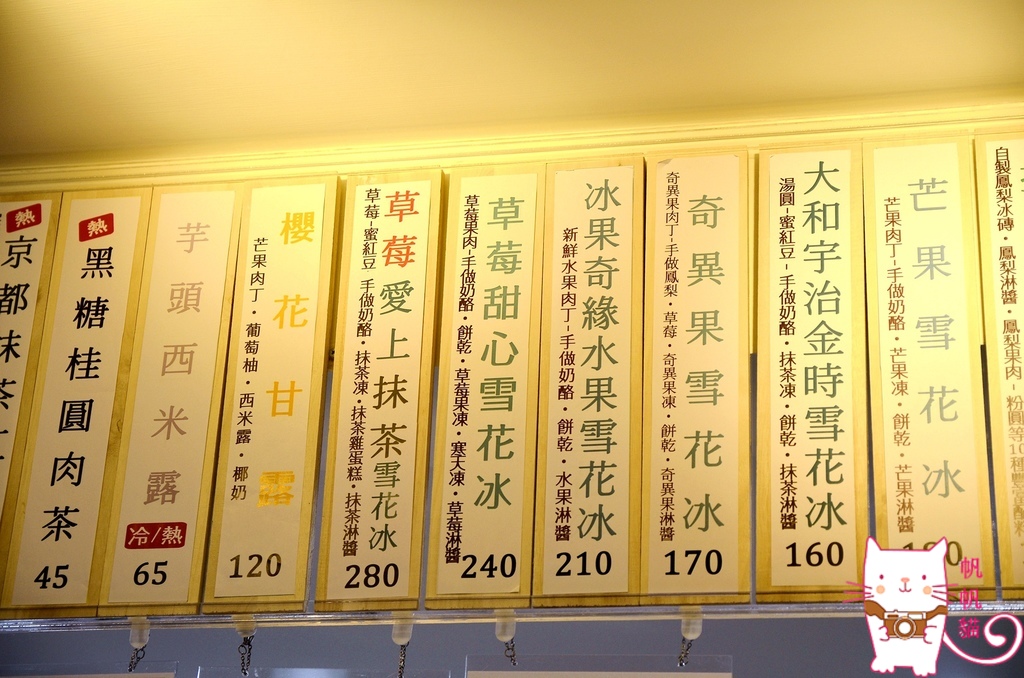 自製鳳梨冰磚・鳳梨淋醬・鳳梨果肉-粉圓等10種豐富配料
芒果雪花冰
芒果肉丁-手做奶酪・芒果凍・餅乾・芒果淋醬
大和宇治金時雪花冰
湯圓-蜜紅豆-手做奶酪・抹茶凍・餅乾・抹茶淋醬
160
奇異果雪花冰
奇異果肉丁-手做鳳梨・草莓・奇異果凍・餅乾・奇異果淋醬
170
冰果奇緣水果雪花冰
新鮮水果肉丁-手做奶酪・餅乾・水果淋醬
210
草莓甜心雪花冰
草莓果肉-手做奶酪・餅乾・草莓果凍・寒天凍・草莓淋醬
240
草莓愛上抹茶雪花冰
草莓-蜜紅豆 手做奶酪・抹茶凍・抹茶雞蛋糕・抹茶淋醬
280
櫻花甘露
芒果肉丁・葡萄柚・西米露・椰奶
120
芋頭西米露
冷/熱
65
熱
黑糖桂圓肉茶
45
熱
京都抹茶
帆帆貓